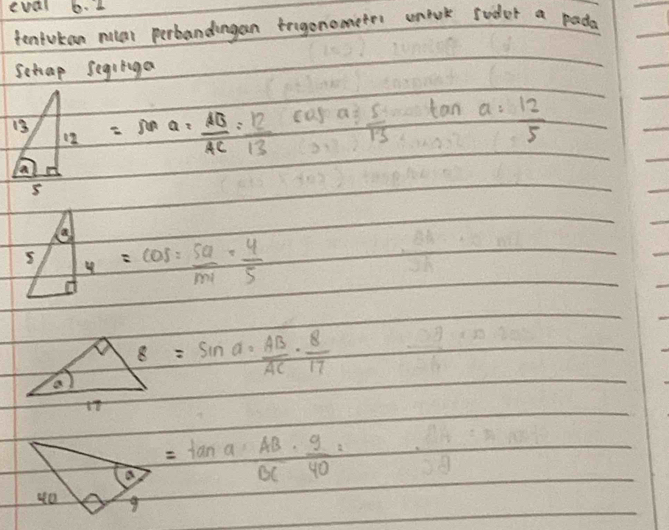 eval 6.2
tentukan nilai perbandingan trigonometri untuk sudut a pada
setiap segitiga
13 12 a 5 = sin a = AB/AC = 12/13 cos a = 5/13 tan a = 12/5
a 5 4 = cos = sa/mi = 4/5
8 a 17 = sin a = AB/AC = 8/17
a 40 9 = tan a = AB/BC = 9/40 =